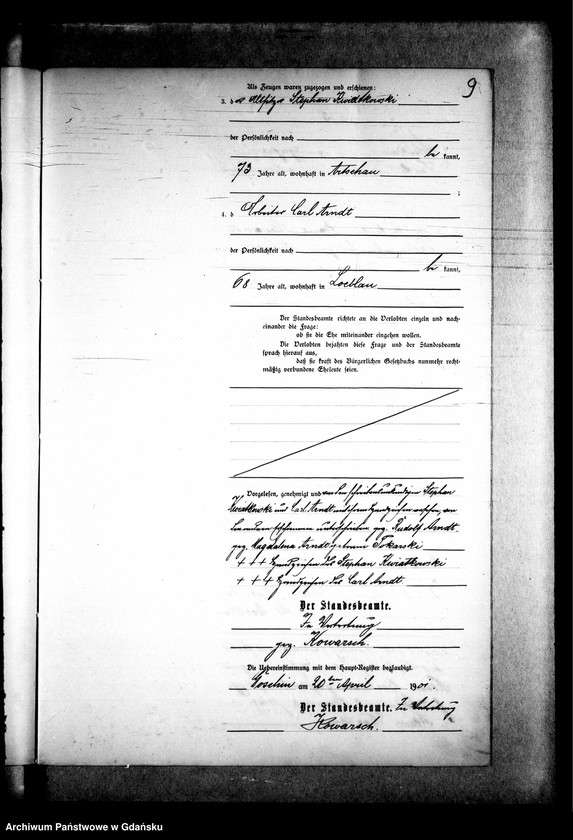 9
Als Zeugen waren zugezogen und erschienen:
3. der Altsitzer Stephan Kwiatkowski
der Persönlichkeit nach
be kannt,
73 Jahre alt, wohnhaft in Artschau
;
4. d Arbeiter Carl Arndt
der Persönlichkeit nach
be kannt,
68 Jahre alt, wohnhaft in Loeblau
Der Standesbeamte richtete an die Verlobten einzeln und nach-
einander die Frage:
ob sie die Ehe miteinander eingehen wollen.
Die Verlobten bejahten diese Frage und der Standesbeamte
sprach hierauf aus,
daß sie kraft des Bürgerlichen Gesetzbuchs nunmehr recht-
mäßig verbundene Eheleute seien.
Vorgelesen, genehmigt und von den schreibensunkundigen Stephan
Kwiatkowski und Carl Arndt mit ihren Handzeichen versehen, von
den unterschrieben gez. Rudolf Arndt.
gez. Magdalena Arndt geborene Tokarski
+++ Handzeichen des Stephan Kwiatkowski
+++ Handzeichen des Carl Arndt
Der Standesbeamte.
In Vertretung
gez. Kowarsch.
Die Uebereinstimmung mit dem Haupt-Register beglaubigt.
Goschin am 20ten April 1901.
Der Standesbeamte. In Vertretung
Kowarsch.
Archiwum Państwowe w Gdańsku